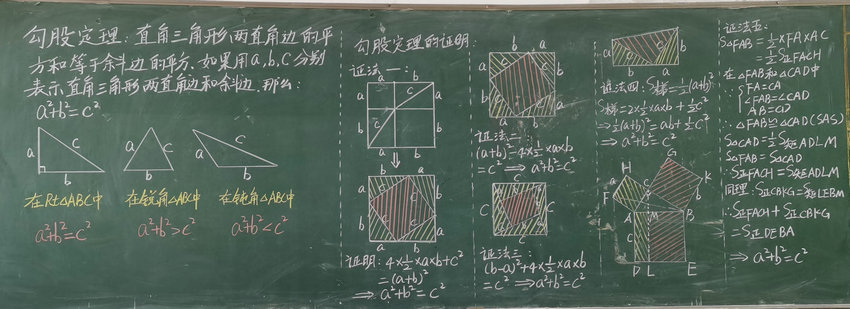 勾股定理:直角三角形两直角边的平
方和等于斜边的平方.如果用a,b,c分别
表示直角三角形两直角边和斜边,那么:
a²+b²=c²
a
c
b
a
c
b
a
c
b
在Rt△ABC中
在锐角△ABC中
在钝角△ABC中
a²+b²=c²
a²+b²>c²
a²+b²<c²
勾股定理的证明:
证法一:
证明:4×½×a×b+c²
=(a+b)²
⇒ a²+b²=c²
证法二:
(a+b)²-4×½×a×b
=c² ⇒ a²+b²=c²
证法三:
(b-a)²+4×½×a×b
=c² ⇒ a²+b²=c²
证法四:S梯=½(a+b)²
S梯=2×½×a×b+½c²
⇒½(a+b)²=ab+½c²
⇒ a²+b²=c²
H
G
K
F
a
b
A
M
B
C
c
D
L
E
证法五:
S△FAB=½×FA×AC
=½S正FACH
在△FAB和△CAD中
FA=CA
∠FAB=∠CAD
AB=CD
∴△FAB≌△CAD(SAS)
S△CAD=½S矩ADLM
S△FAB=S△CAD
∴S正FACH=S矩ADLM
同理:S正CBKG=S矩LEBM
∴S正FACH+S正CBKG
=S正DEBA
⇒ a²+b²=c²